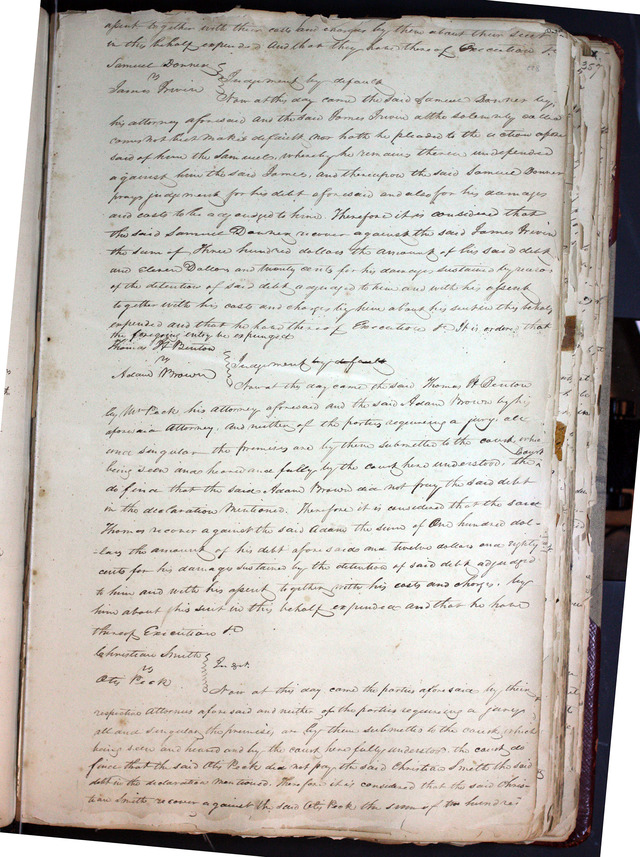 apent together with their costs and charges by them about their suit
in this behalf expended And that they have thereof Execution &c
Samuel Donner
vs
James Irwin
Judgement by default
Now at this day came the said Samuel Donner by
his attorney aforesaid and the said James Irwin altho solemnly called
comes not but makes default nor hath he pleaded to the action afore
said of him the Samuel, whereby he remains therein undefended
against him the said James, and thereupon the said Samuel Donner
prays judgment for his debt aforesaid and also for his damages
and costs to be adjudged to him. Therefore it is considered that
the said Samuel Donner recover against the said James Irwin
the sum of Three hundred dollars the amount of his said debt
and Eleven Dollars and twenty cents for his damages sustained by reason
of the detention of said debt adjudged to him and with his assent
together with his costs and charges by him about his suit in this behalf
expended and that he have thereof Execution &c It is ordered that
the foregoing entry be expunged
Thomas H Benton
vs
Adam Brown
Judgement by default
Now at this day came the said Thomas H Benton
by Mr Peck his Attorney aforesaid and the said Adam Brown by his
aforesaid Attorney. And neither of the parties requiring a jury. all
and singular the premises are by them submitted to the court, who
being seen and heard and fully by the court here understood, the Court
do find that the said Adam Brown did not pay the said debt
in the declaration Mentioned. Therefore it is considered that the said
Thomas recover against the said Adam the sum of One hundred dol-
-lars the amount of his debt aforesaid and twelve dollars and eighty
cents for his damages sustained by the detention of said debt adjudged
to him and with his assent together with his costs and charges. by
him about his suit in this behalf expended and that he have
thereof Execution &c
Christian Smith
vs
Otis Peck
In Debt.
Now at this day came the parties aforesaid by their
respective Attornies aforesaid and neither of the parties requiring a jury
all and singular the premises are by them submitted to the court which
being seen and heard and by the court here fully understood. the court do
find that the said Otis Peck did not pay the said Christian Smith the said
debt in the declaration mentioned. Therefore it is considered that the said Chris-
-tian Smith, recover against the said Otis Peck the sum of two hundred
357